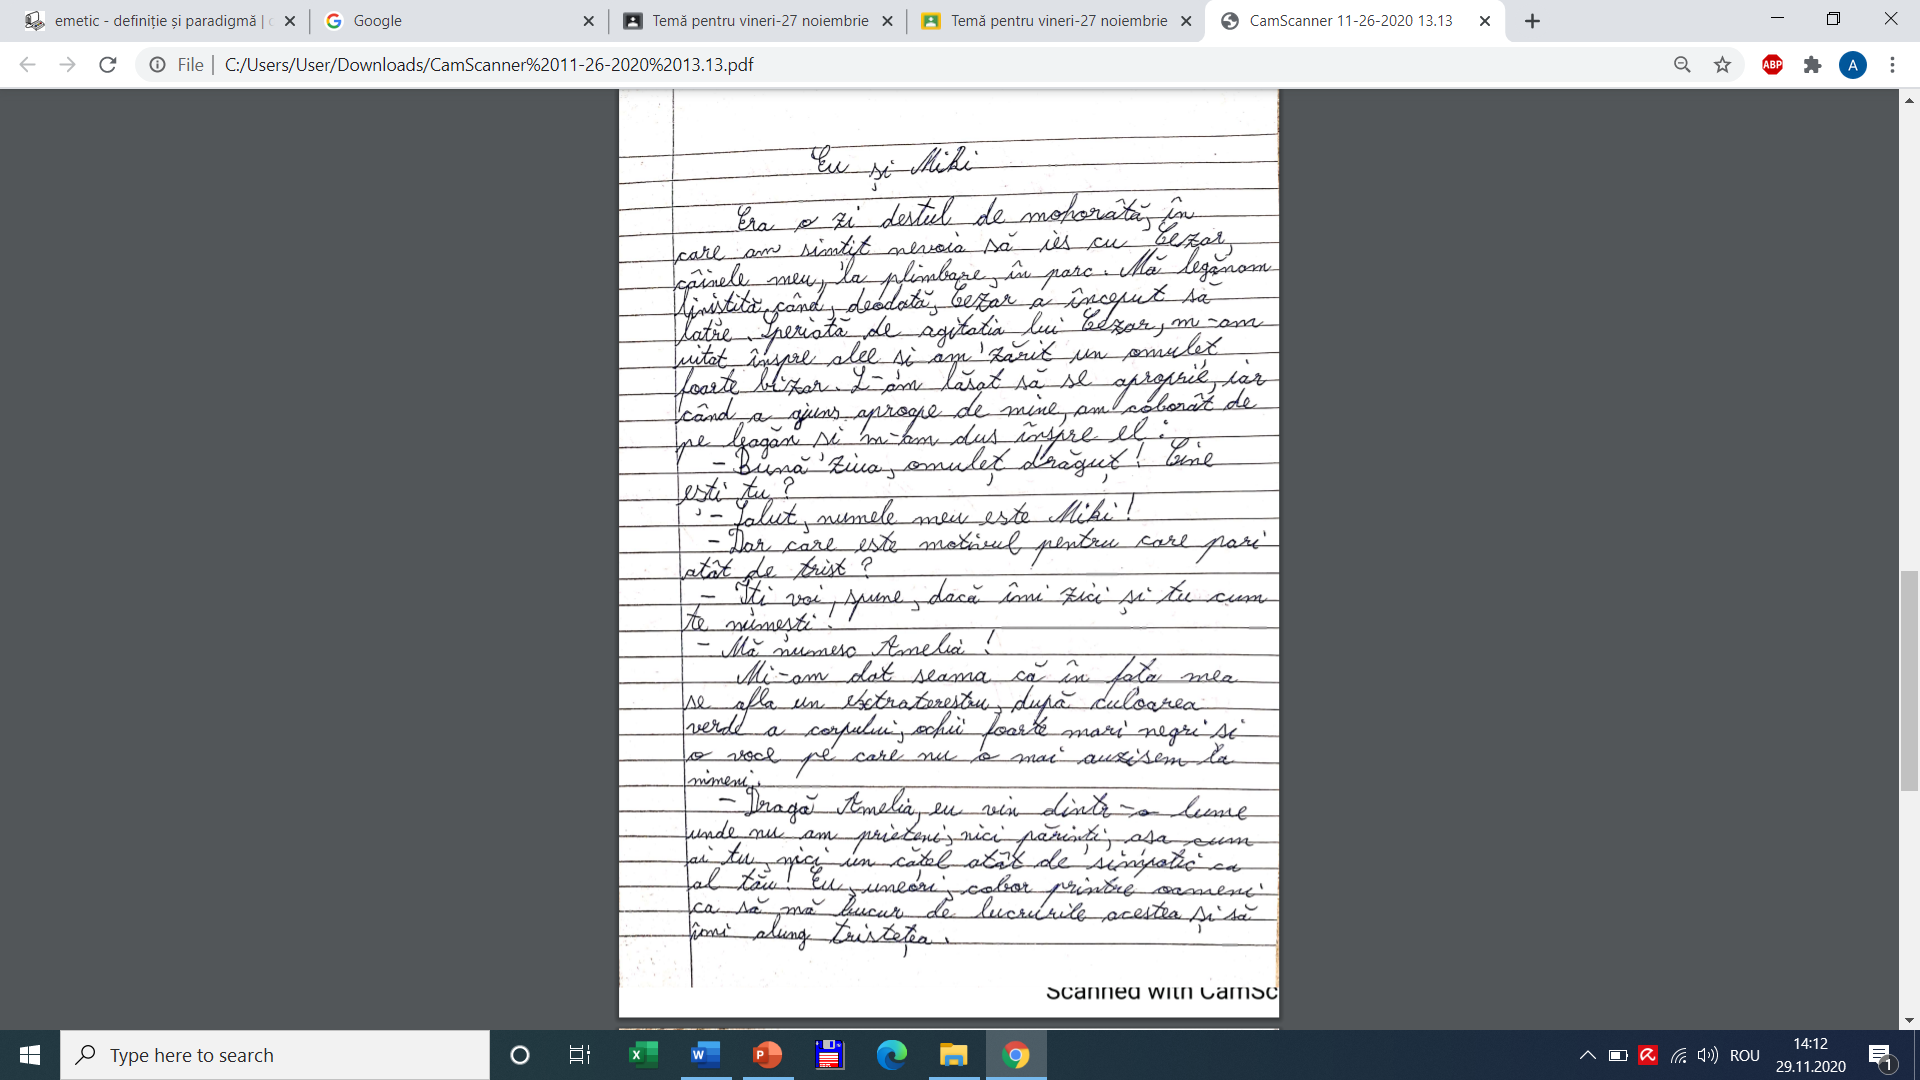 emetic - definiție și paradigmă |
Google
Temă pentru vineri-27 noiembrie
Temă pentru vineri-27 noiembrie
CamScanner 11-26-2020 13.13
File
C:/Users/User/Downloads/CamScanner%2011-26-2020%2013.13.pdf
ABP
A
Eu și Miki
Era o zi destul de mohorâtă, în
care am simțit nevoia să ies cu Cezar,
câinele meu, la plimbare, în parc. Mă legănam
liniștită când, deodată, Cezar a început să
latre. Speriată de agitatia lui Cezar, m-am
uitat înspre alee si am zărit un omuleț
foarte bizar. L-am lăsat să se aproprie, iar
când a ajuns aproape de mine, am coborât de
pe leagăn si m-am dus înspre el:
- Bună ziua, omuleț drăguț! Cine
ești tu?
- Salut, numele meu este Miki!
- Dar care este motivul pentru care pari
atât de trist?
- Îți voi spune, dacă îmi zici și tu cum
te numești!
- Mă numesc Amelia!
Mi-am dat seama că în fata mea
se afla un extraterestru, după culoarea
verde a corpului, ochii foarte mari negri si
o voce pe care nu o mai auzisem la
nimeni.
- Dragă Amelia, eu vin dintr-o lume
unde nu am prieteni, nici părinți, asa cum
ai tu, nici un cățel atât de simpatic ca
al tău! Eu, uneori, cobor printre oameni
ca să mă bucur de lucrurile acestea și să
îmi alung tristețea.
Scanned with CamSc
Type here to search
ROU
14:12
29.11.2020
1